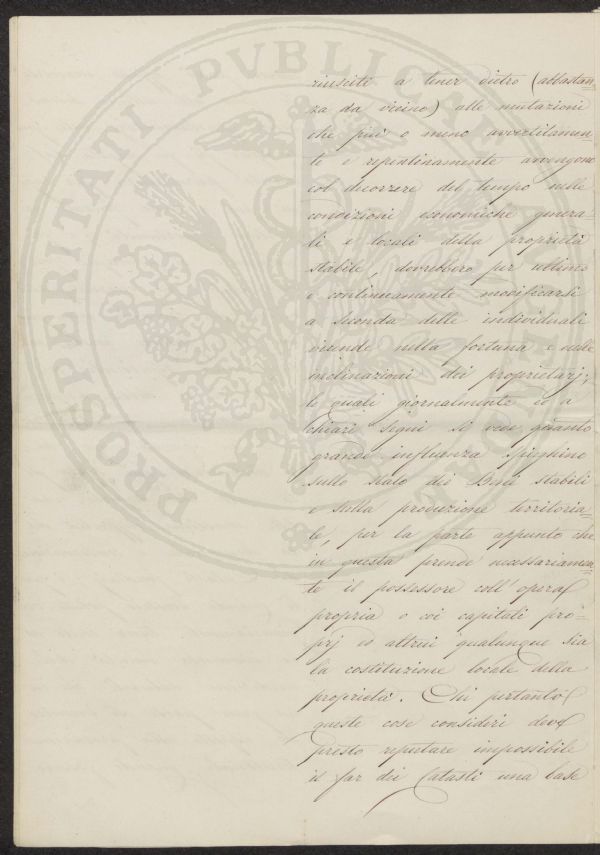 PROSPERITATI PVBLICAE
riusciti a tener dietro (abbastan=
za da vicino) alle mutazioni
che più o meno avvertitamen=
te e repentinamente avvengono
col decorrere del tempo nelle
condizioni economiche genera=
li e locali della proprietà
stabile, dovrebbero per ultimo
e continuamente modificarsi
a seconda delle individuali
vicende nella fortuna e nelle
inclinazioni dei proprietarj;
le quali giornalmente ed a
chiari segni si vede quanto
grande influenza spieghino
sullo stato dei Beni stabili
e sulla produzione territoria=
le, per la parte appunto che
in questa prende necessariamen=
te il possessore coll'opera
propria o coi capitali pro=
prj ed altrui qualunque sia
la costituzione locale della
proprietà. Chi pertanto
queste cose consideri deve
presto reputare impossibile
il far dei Catasti una base